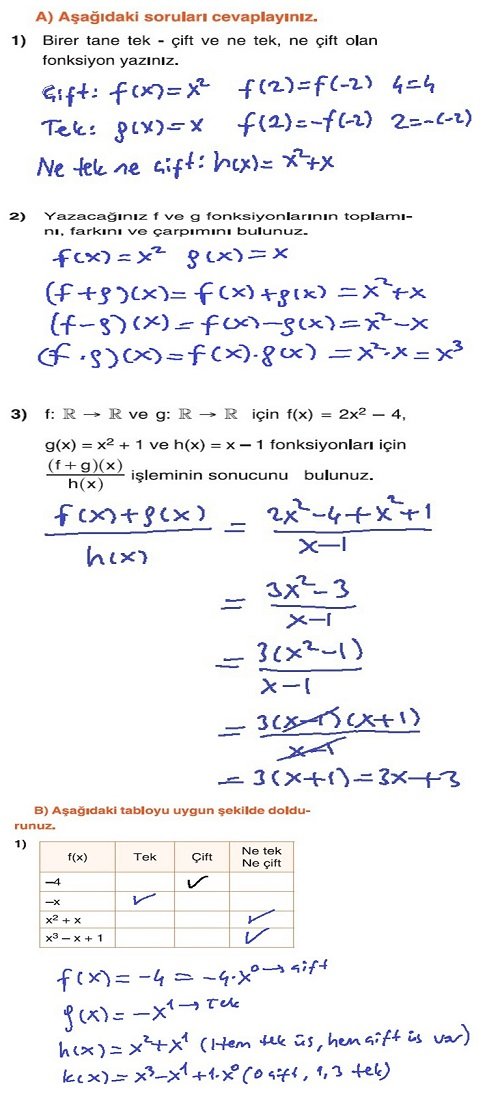 A) Aşağıdaki soruları cevaplayınız.
1) Birer tane tek - çift ve ne tek, ne çift olan
fonksiyon yazınız.
Çift: f(x) = x² f(2) = f(-2) 4=4
Tek: g(x) = x f(2) = -f(-2) 2=-(-2)
Ne tek ne çift: h(x) = x²+x
2) Yazacağınız f ve g fonksiyonlarının toplamı-
nı, farkını ve çarpımını bulunuz.
f(x) = x² g(x) = x
(f+g)(x) = f(x)+g(x) = x²+x
(f-g)(x) = f(x)-g(x) = x²-x
(f·g)(x) = f(x)·g(x) = x²·x = x³
3) f: ℝ → ℝ ve g: ℝ → ℝ için f(x) = 2x² – 4,
g(x) = x² + 1 ve h(x) = x – 1 fonksiyonları için
(f + g)(x)/h(x) işleminin sonucunu bulunuz.
(f(x)+g(x))/h(x) = (2x²-4+x²+1)/(x-1)
= (3x²-3)/(x-1)
= 3(x²-1)/(x-1)
= 3(x-1)(x+1)/(x-1)
= 3(x+1) = 3x+3
B) Aşağıdaki tabloyu uygun şekilde doldu-
runuz.
1)
f(x) Tek Çift Ne tek Ne çift
–4 ✓
–x ✓
x² + x ✓
x³ – x + 1 ✓
f(x) = -4 = -4·x⁰ → çift
g(x) = -x¹ → Tek
h(x) = x²+x¹ (Hem tek üs, hem çift üs var)
k(x) = x³-x¹+1·x⁰ (0 çift, 1,3 tek)